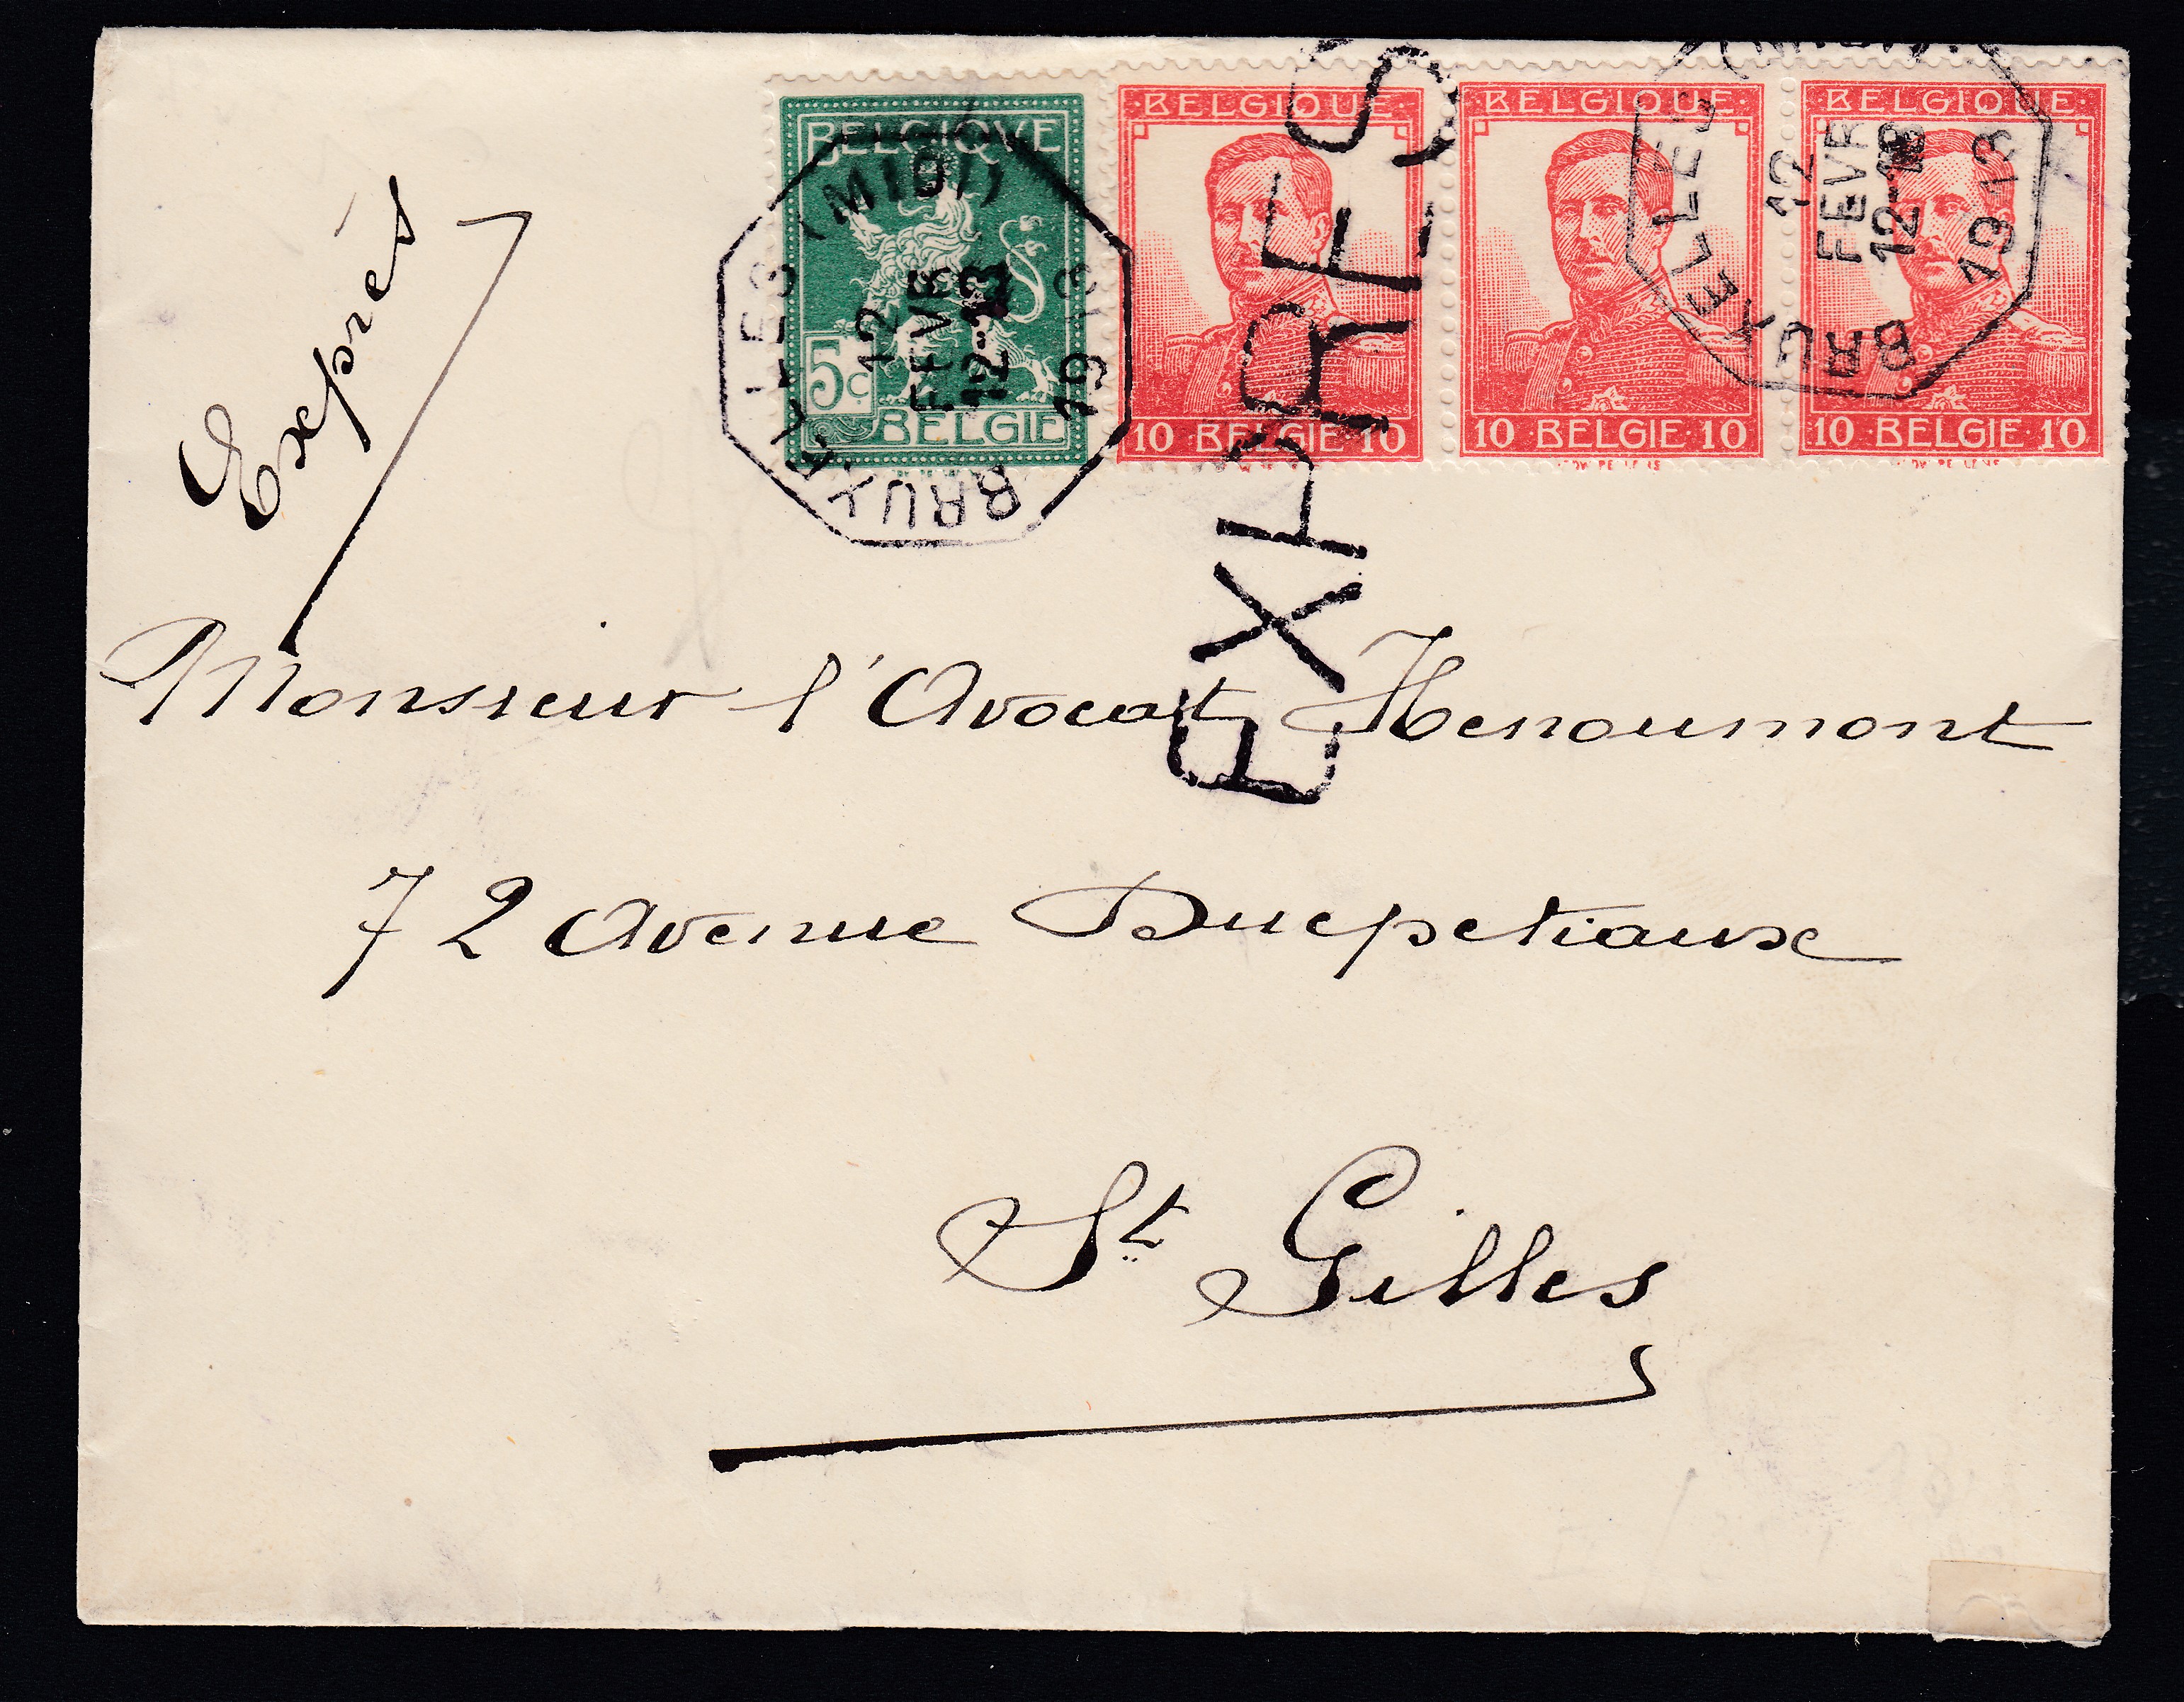 Exprès
BELGIQVE
5c
BELGIE
BELGIQUE
10 BELGIE 10
BELGIQUE
10 BELGIE 10
BELGIQUE
10 BELGIE 10
BRUXELLES (MIDI)
12
FEVR
12-13
1913
BRUXELLES
12
FEVR
12-13
1913
EXPRES
Monsieur l'Avocat Henoumont
72 Avenue Ducpetiaux
St Gilles